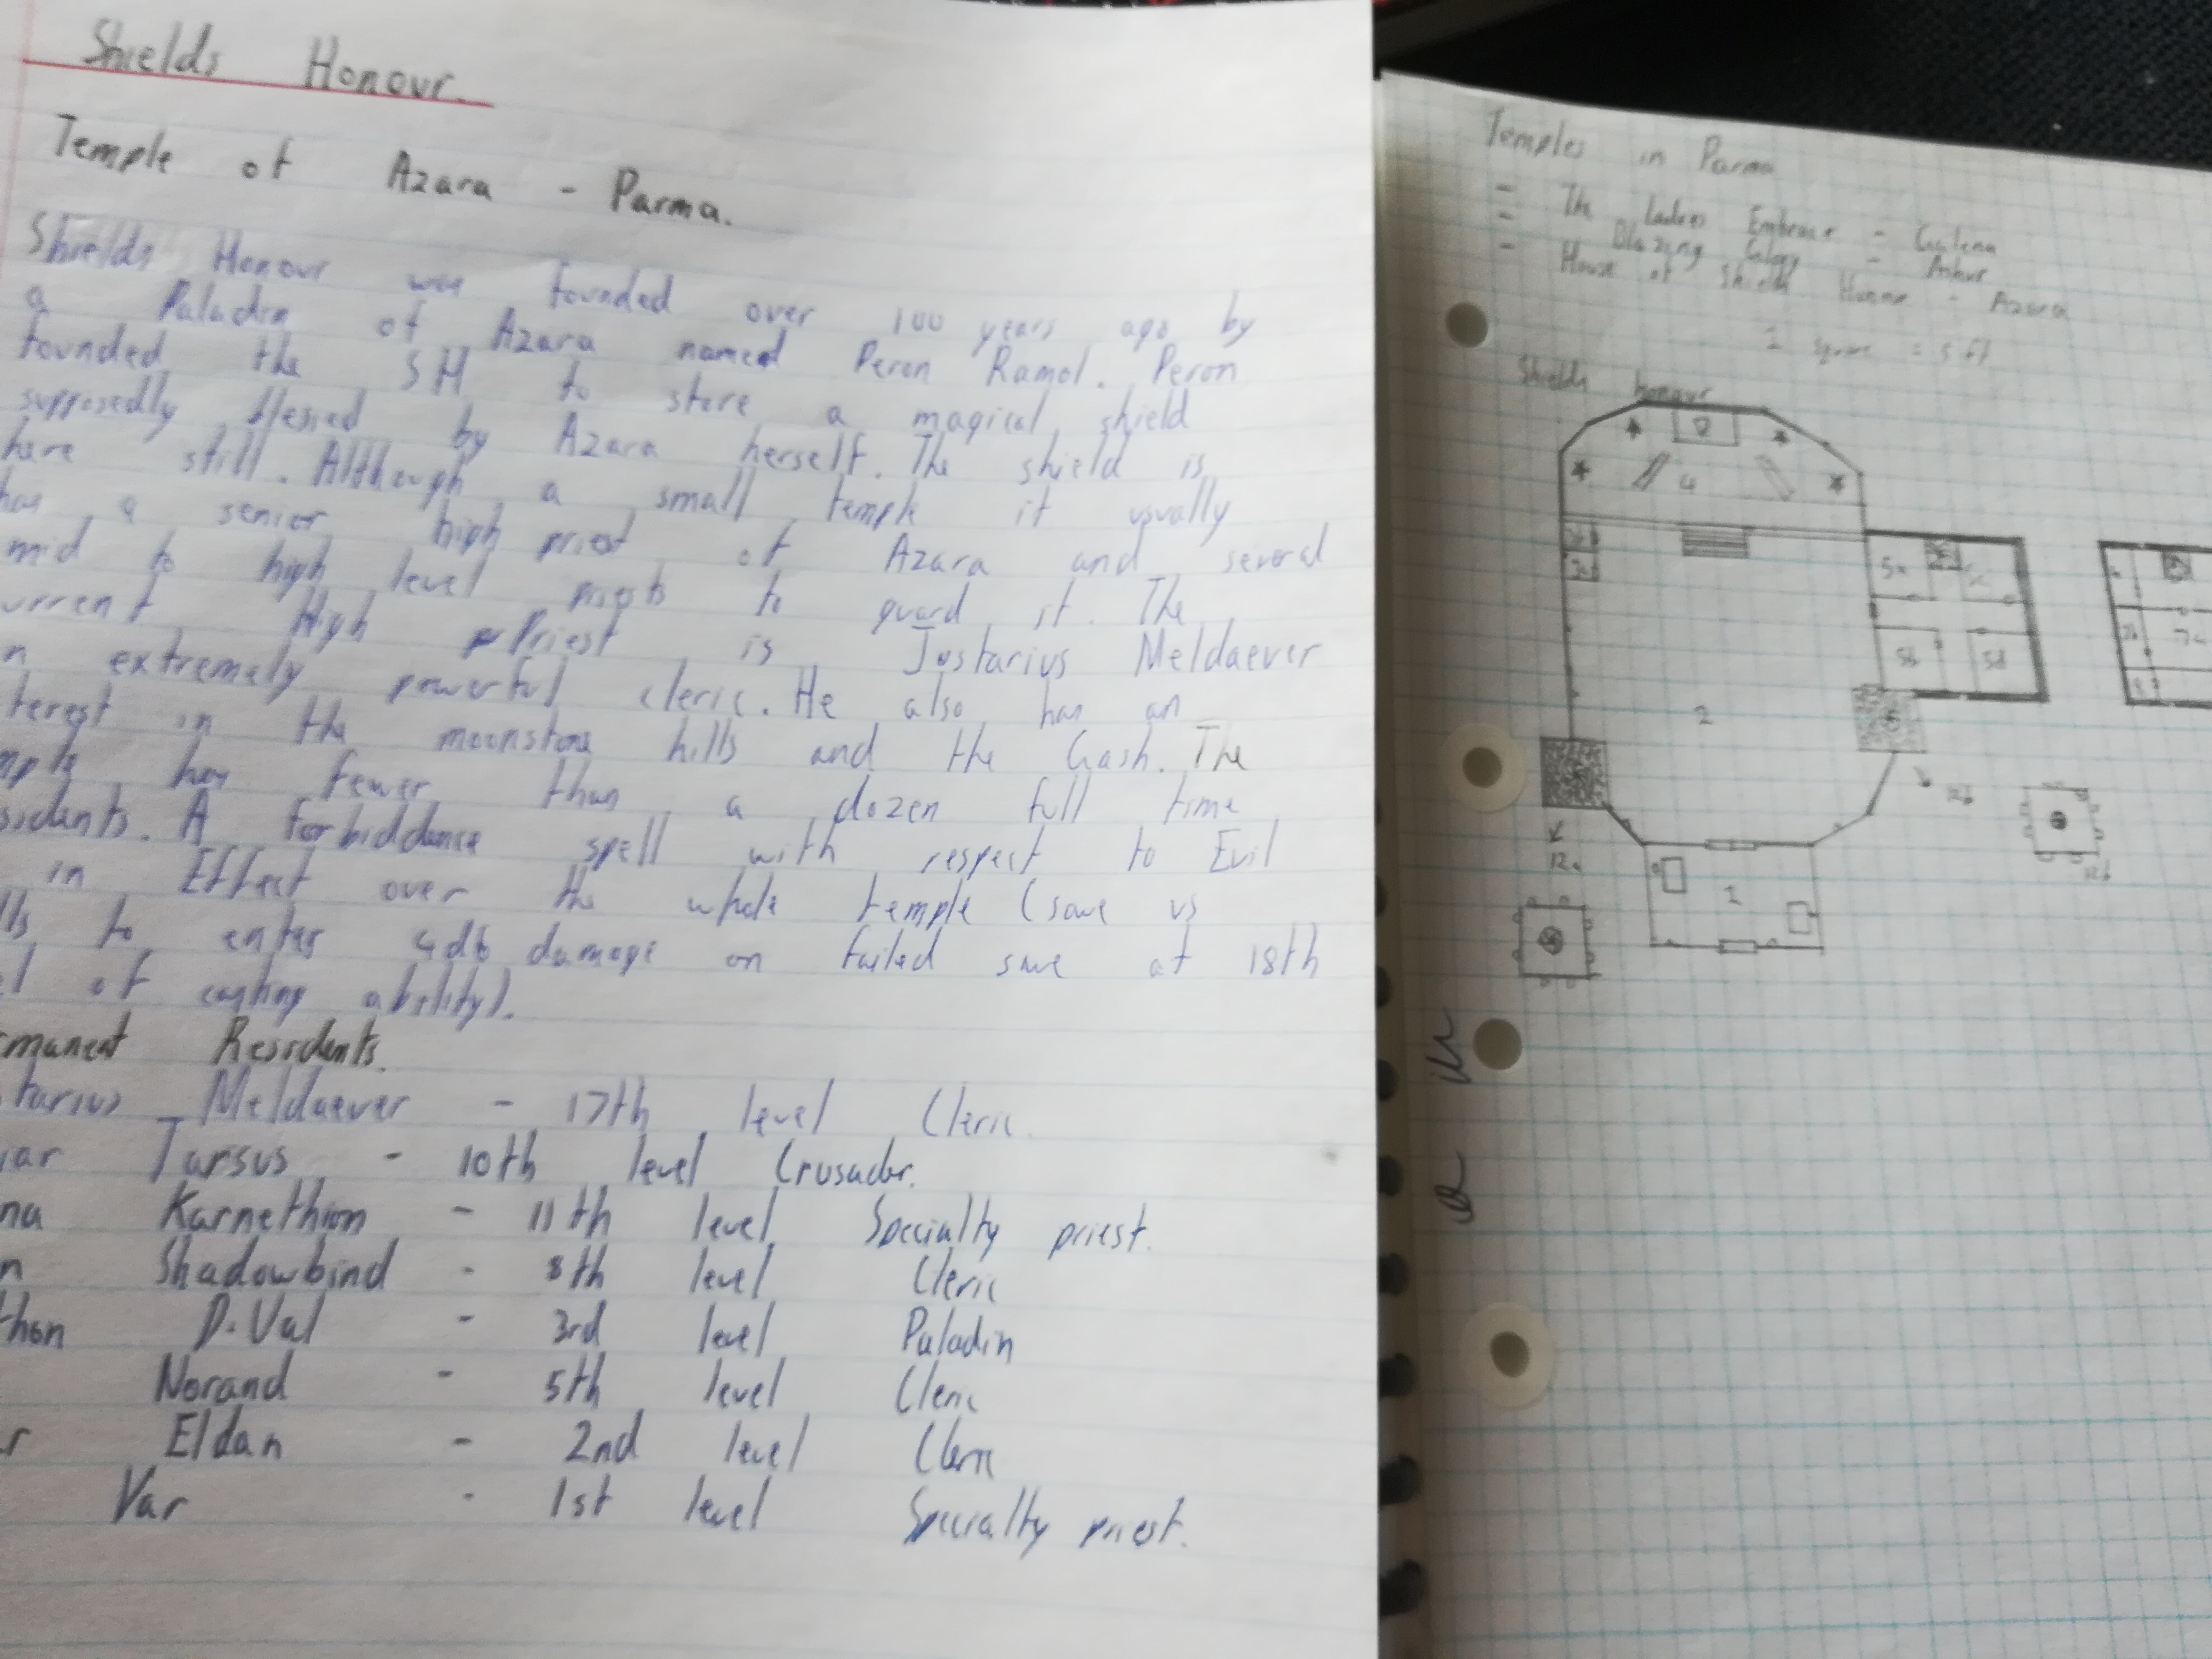 Shields Honour.
Temple of Azara - Parma.
Shields Honour was founded over 100 years ago by
a Paladin of Azara named Peron Ramol. Peron
founded the SH to store a magical shield
supposedly blessed by Azara herself. The shield is
here still. Although a small temple it usually
has a senior high priest of Azara and several
mid to high level priests to guard it. The
urrent High Priest is Justarius Meldaever
n extremely powerful cleric. He also has an
terest in the moonstone hills and the Gash. The
mple has fewer than a dozen full time
sidents. A forbiddance spell with respect to Evil
in Effect over the whole temple (save vs
lls to enter 4d6 damage on failed save at 18th
l of casting ability).
manent Residents.
tarius Meldaever - 17th level Cleric.
iar Tarsus - 10th level Crusader.
na Karnethion - 11th level Specialty priest.
n Shadowbind - 8th level Cleric
thon D.Val - 3rd level Paladin
Norand - 5th level Cleric
r Eldan - 2nd level Cleric
Var - 1st level Specialty priest.
Temples in Parma
- The Ladies Embrace -
- Blazing Glory -
- House of Shield Honour - Azara
1 square = 5 ft
Shields honour
4
5a 5c
5b 5d
7a
2
12b
12a
12b
1